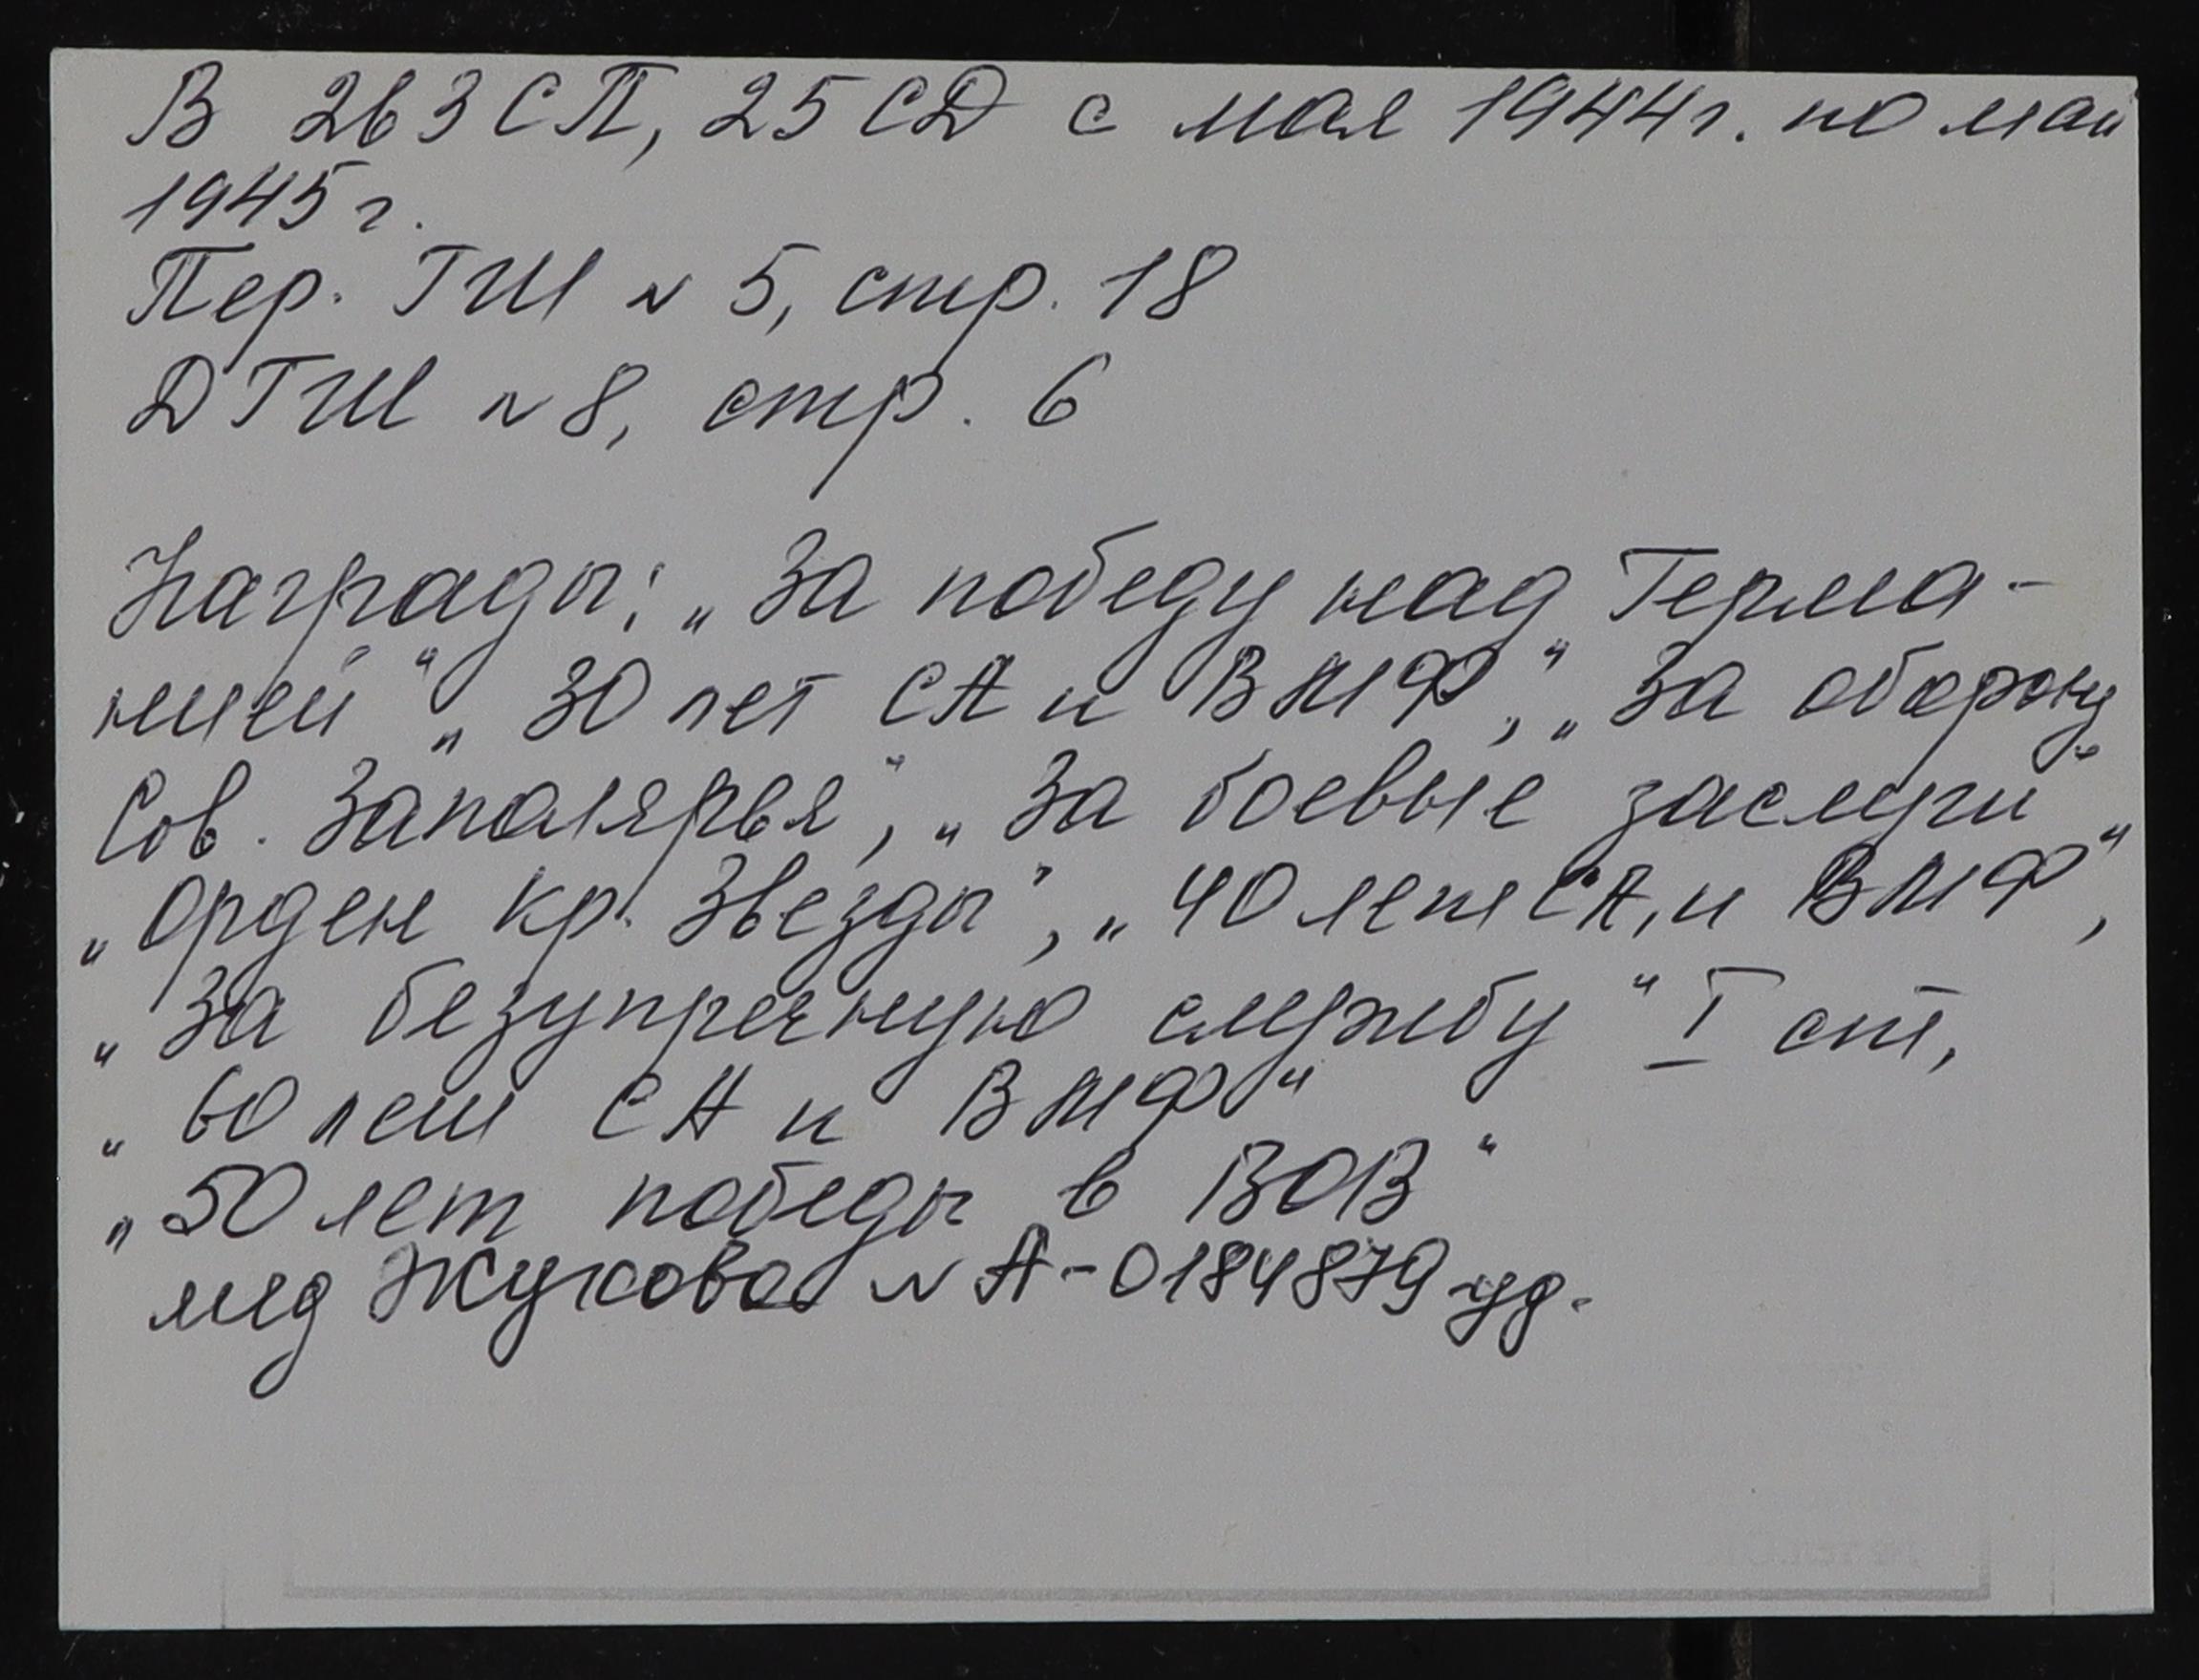 В 263 СП, 25 СД с мая 1944г. по май
1945г.
Пер. ГШ № 5, стр. 18
ДГШ № 8, стр. 6
Награды: „За победу над Герма-
нией" „30 лет СА и ВМФ", „За оборону
Сов. Заполярья", „За боевые заслуги"
„Орден Кр. Звезды", „40 лет СА, и ВМФ",
„За безупречную службу" I ст,
„60 лет СА и ВМФ"
„50 лет победы в ВОВ"
мед Жукова № А-0184879 уд.